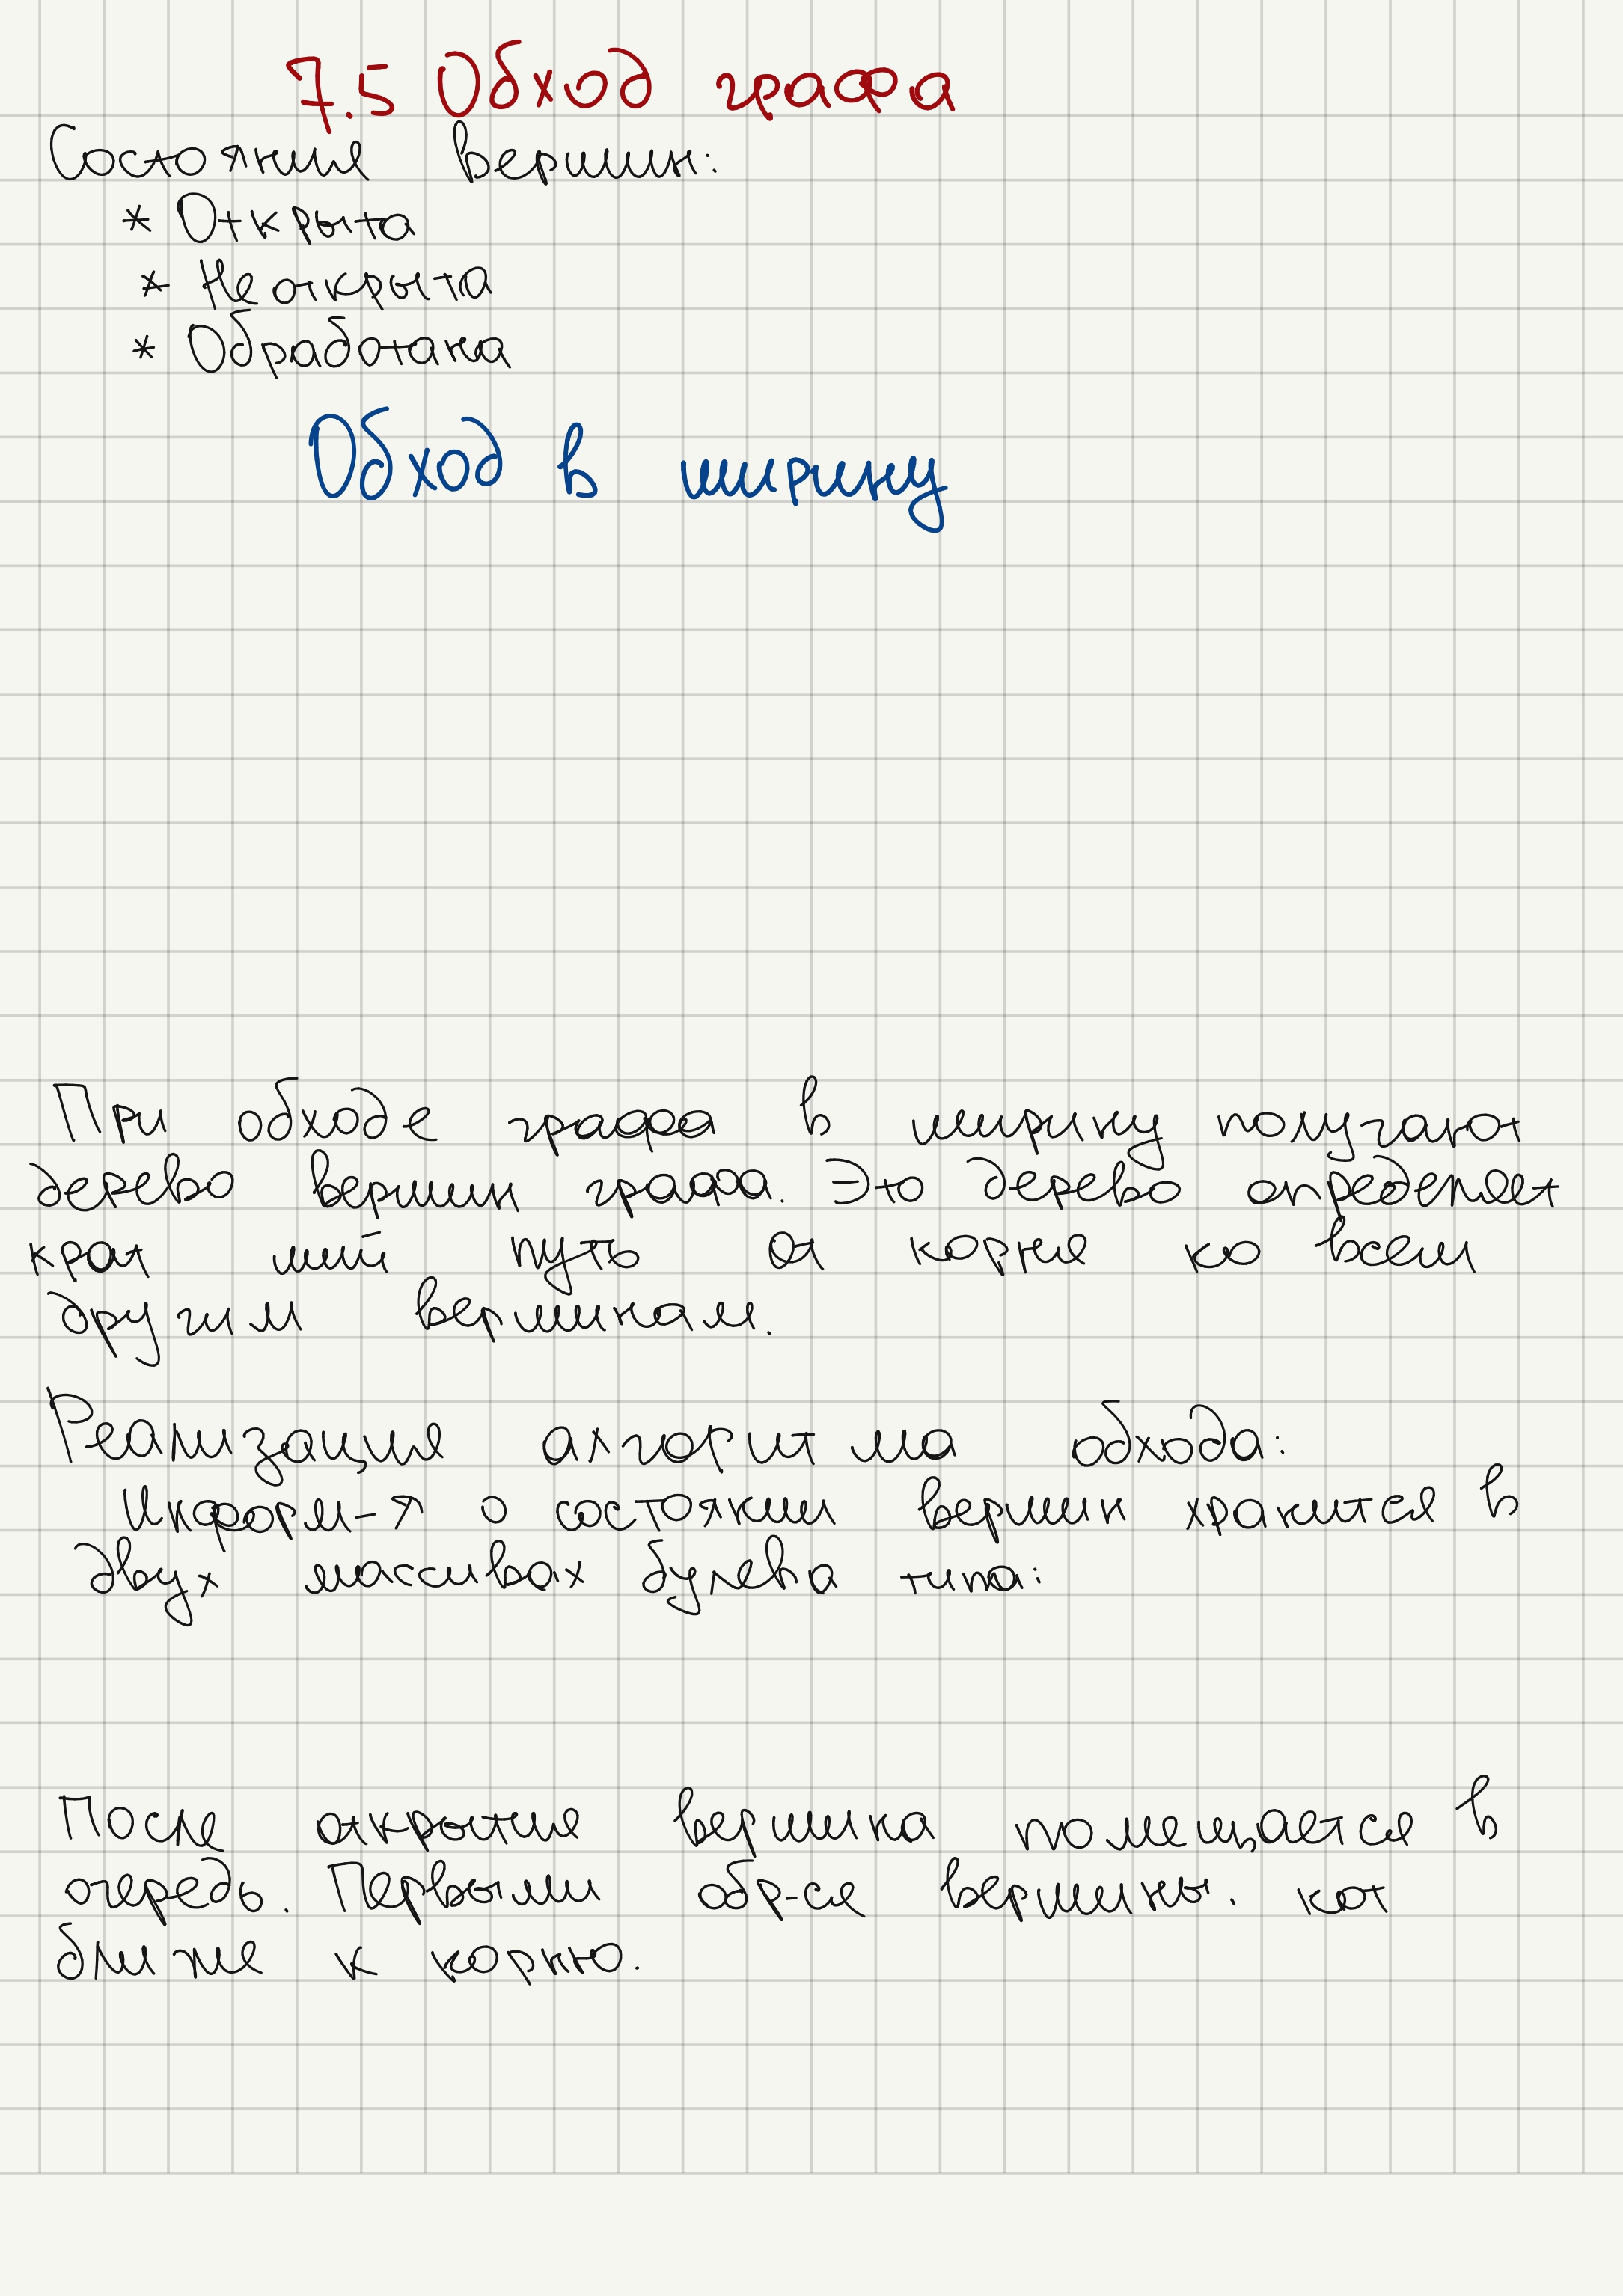 7.5 Обход графа
Состояние вершин:
* Открыта
* Не открыта
* Обработана
Обход в ширину
При обходе графа в ширину получают
дерево вершин графа. Это дерево определяет
крат ший путь от корня ко всем
другим вершинам.
Реализация алгоритма обхода:
Информ-я о состоянии вершин хранится в
двух массивах булева типа:
После открытия вершина помещается в
очередь. Первыми обр-ся вершины. кот
ближе к корню.